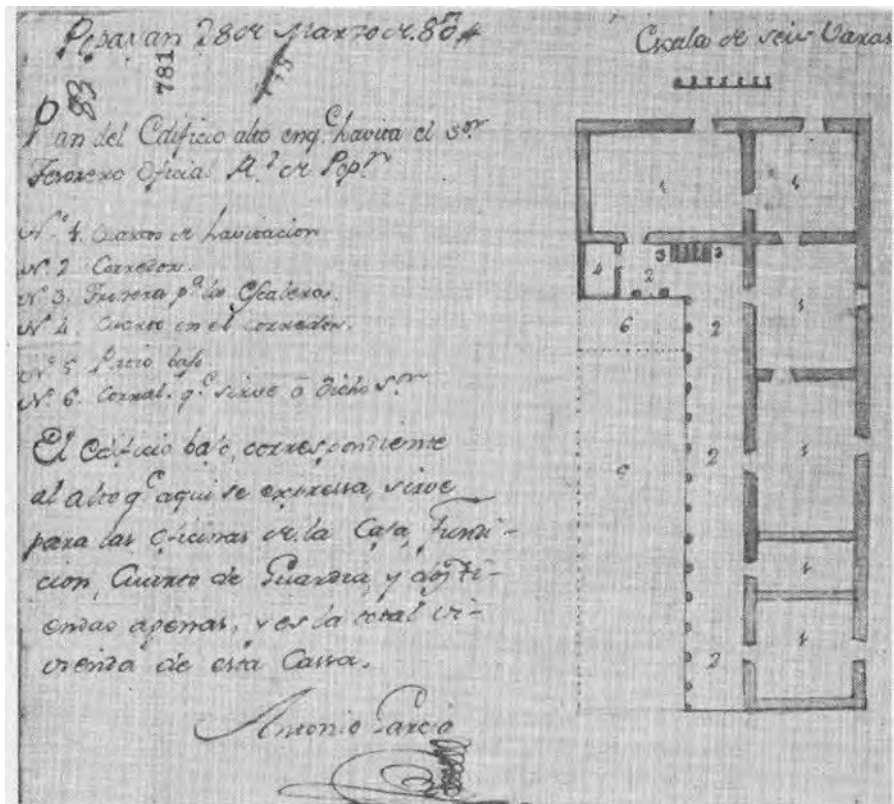 Popayan 28 de Marzo de. 804
Escala de seis Varas
83
781
Plan del Edificio alto en q.e havita el S.or
Tesorero Oficial R.l de Pop.n
N.o 1. Quartos de havitacion
N.o 2 Corredor.
N.o 3. p.a las Escaleras.
N.o 4. Quarto en el corredor.
N.o 5 Patio bajo
N.o 6. Corral. q.e sirve à dicho S.or
El Edificio bajo, correspondiente
al alto q.e aqui se expressa, sirve
para las Oficinas de la Casa, Fundi-
cion, Quarto de Guardia, y dos Ti-
endas apenas, y es la total vi-
vienda de esta Cassa.
Antonio Garcia
1
1
4
2
3
3
6
2
1
2
1
1
2
1